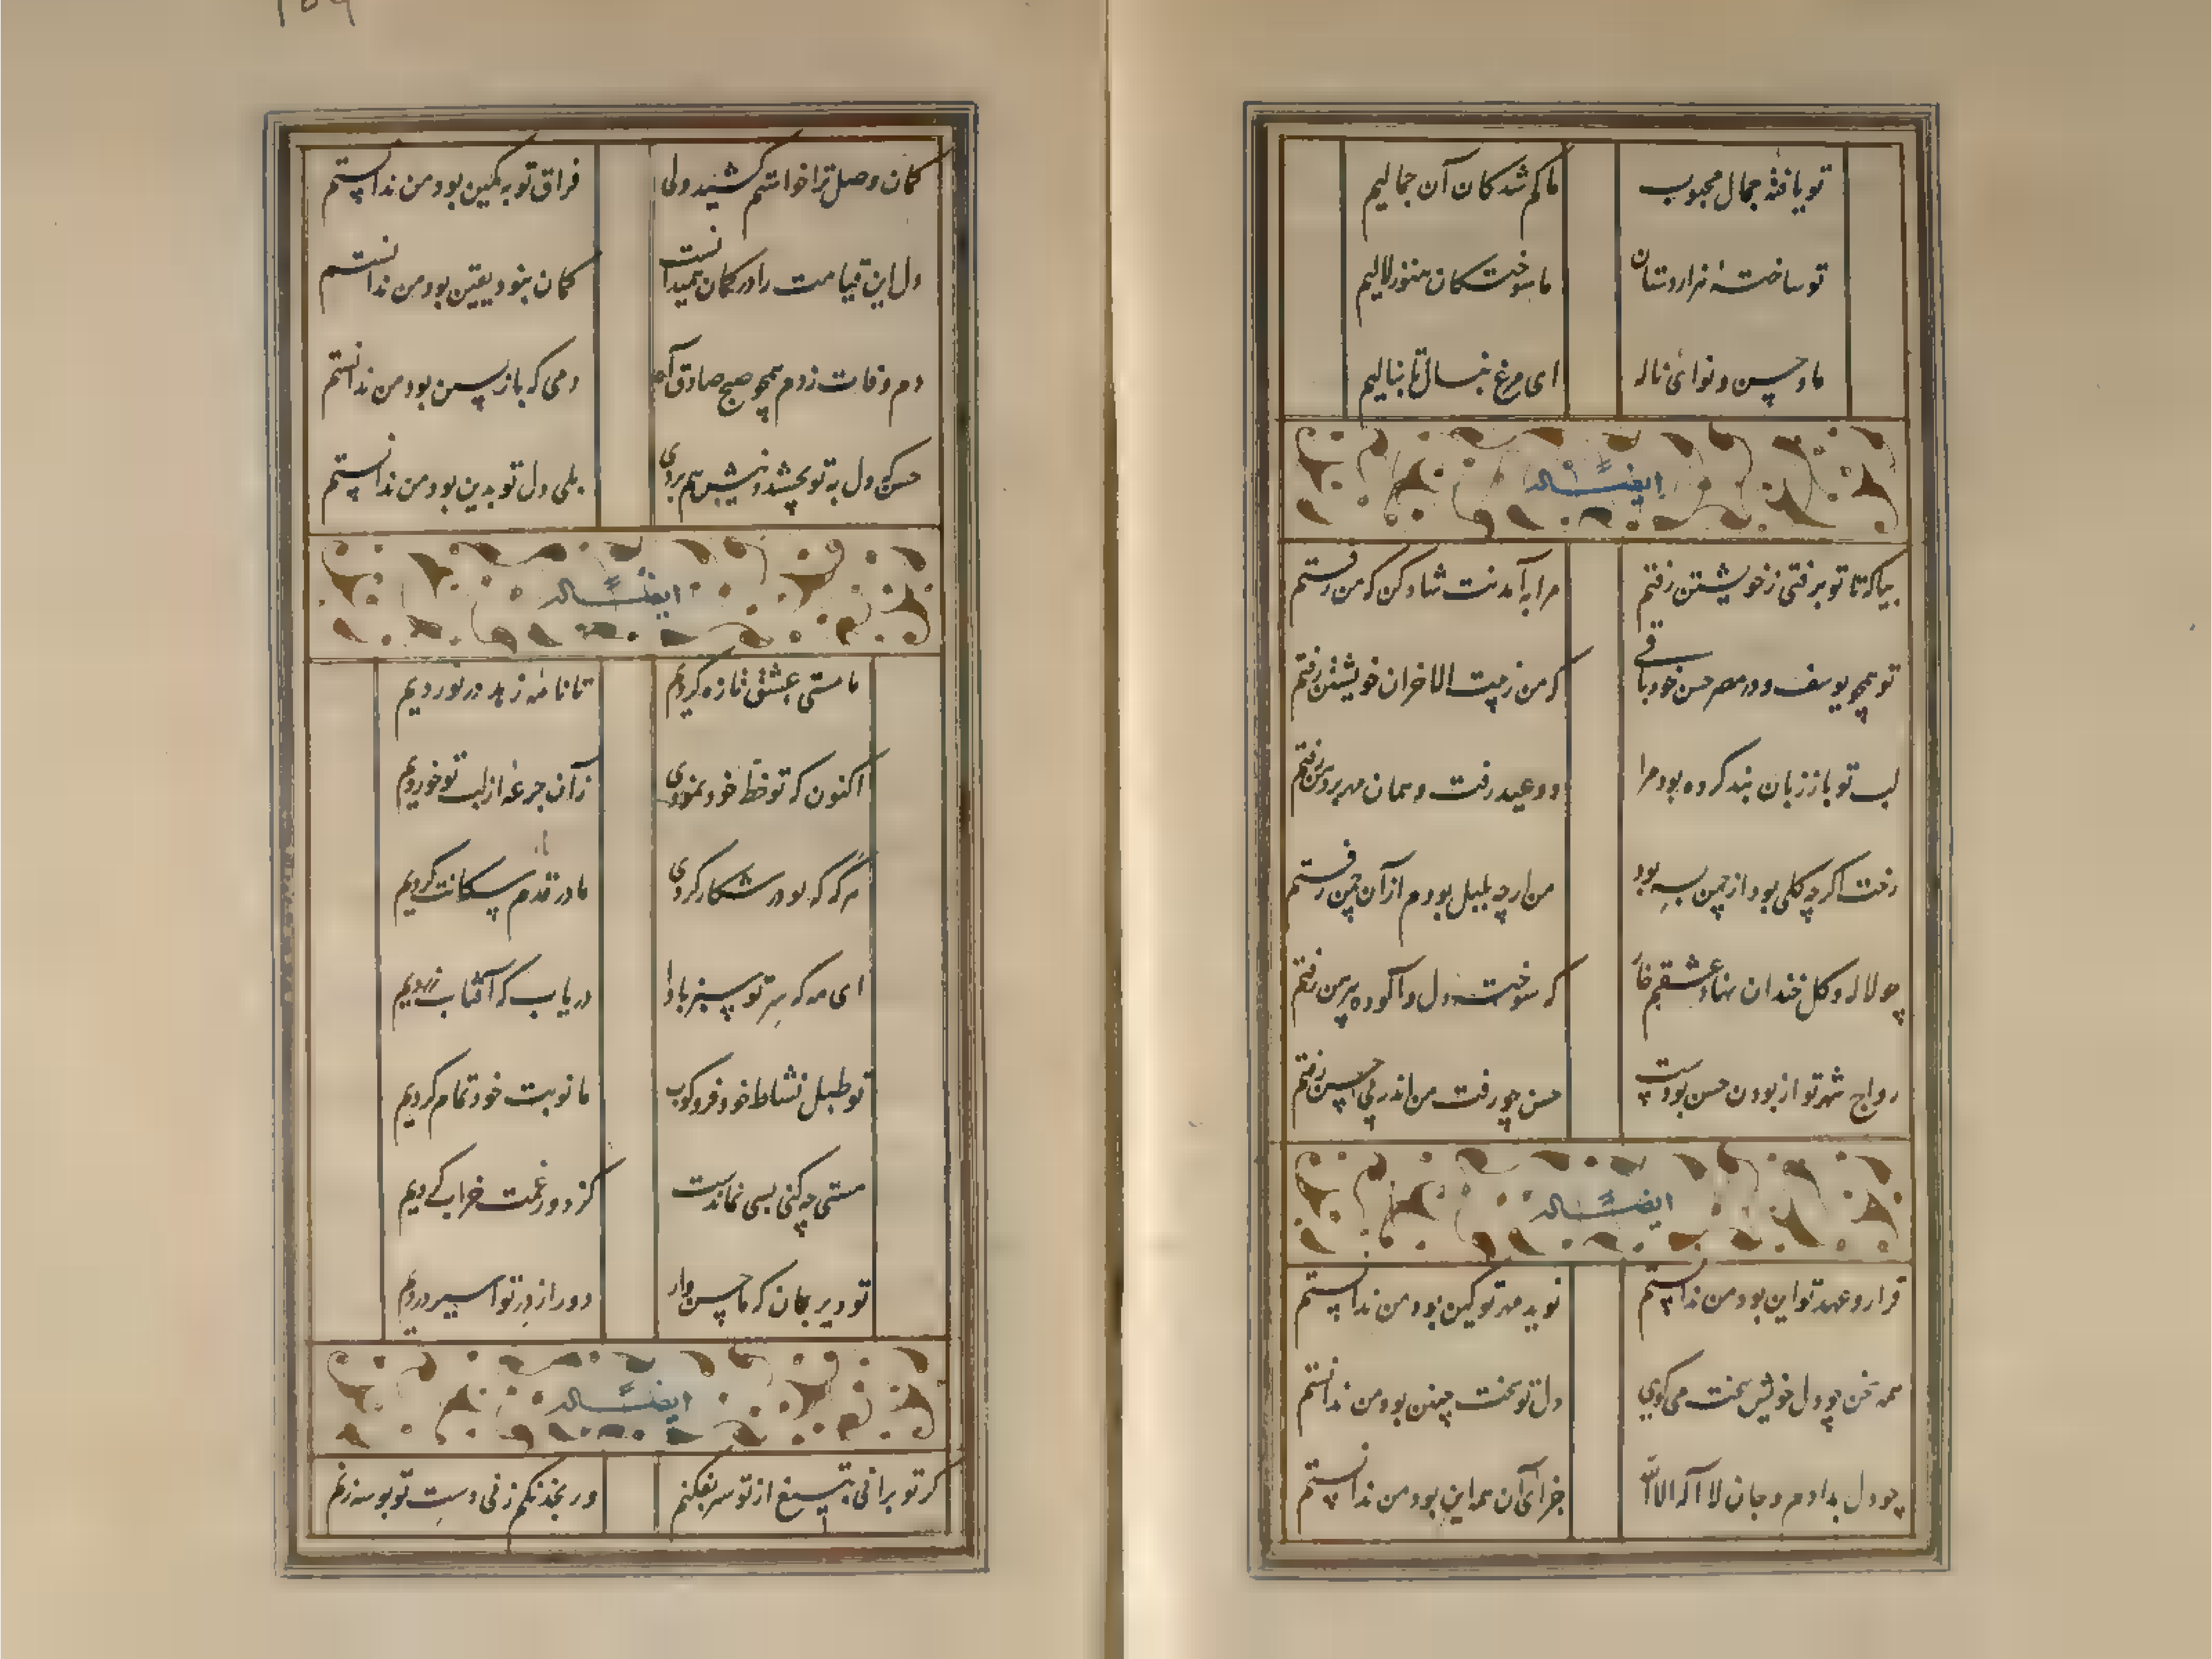 تو یافتهٔ جمال محبوب    ما کم شدکان آن جمالیم
تو ساختهٔ هزار دستان    ما سوختکان هنوز لالیم
ما و حسن و نوای ناله    ای مرغ بنال تا بنالیم
ایضاً له
بیا که تا تو برفتی ز خویشتن رفتم    مرا به آمدنت شاد کن که من رفتم
تو همچو یوسف و در مصر حسن خود باقی    که من ز بیت الاحزان خویشتن رفتم
لب تو باز زبان بند کرده بود مرا    دو عید رفت و همان مهر بر دهن رفتم
رخت اکرچه کلی بود از چمن به بود    من ارچه بلبل بودم از آن چمن رفتم
چو لاله و کل خندان نهاد عشقم خار    که سوخت دل و آلوده پیرهن رفتم
رواج شهر تو از بودن حسن بودست    حسن چو رفت من اندر پی حسن رفتم
ایضاً له
قرار و عهد تو این بود من ندانستم    نوید مهر تو کین بود من ندانستم
همه سخن چو دل خویش سخت می کویی    دل تو سخت چنین بود من ندانستم
چو دل بدادم و جان لا اله الا الله    جزای آن همه این بود من ندانستم
کمان وصل ترا خواستم کشید ولی    فراق تو به کمین بود من ندانستم
دل این قیامت را در کمان همیدانست    کمان نبود یقین بود من ندانستم
دم وفات زدم همچو صبح صادق آه    دمی که بازپسین بود من ندانستم
حسن که دل به تو بخشد و نیش هم بردی    بلی دل تو بدین بود من ندانستم
ایضاً له
ما مستی عشق تازه کردیم    تا نامهٔ زهد در نوردیم
اکنون که تو خط خود نمودی    زآن جرعه از لب تو خوردیم
هر کرک که بود در شکار کردی    ما در قدم سکانت کردیم
ای مه که سر تو سبز بادا    دریاب که آفتاب زردیم
تو طبل نشاط خود فرو کوب    ما نوبت خود تمام کردیم
مستی چه کنی بسی نماندست    کز دور غمت خراب کردیم
تو دیر بمان که ما حسن وار    دور از در تو اسیر دردیم
ایضاً له
کر تو برانی بتیغ از تو سر نفکنم    ور بخدنکم زنی دست تو بوسه زنم